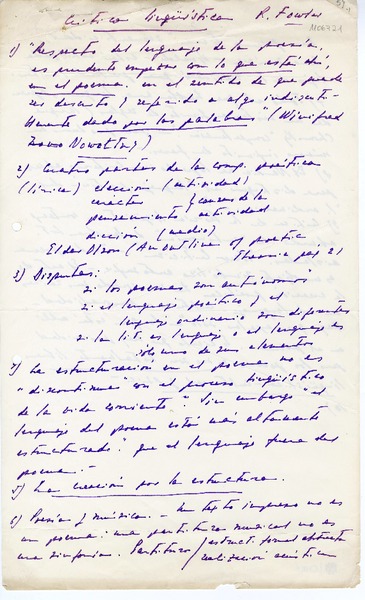 Crítica lingüística R. Fowler
1) "Respecto del lenguaje de la poesía,
es prudente empezar con lo que está ahí,
en el poema. en el sentido de que puede
ser descrito y referido a algo
dado por las palabras" (Winifred
Nowottny)
2) Cuatro partes de la comp. poética
(lírica) elección (actividad)
carácter } causas de la
pensamiento } actividad
dicción (medio)
Elder Olson (An outline of poetic
Theorie pág 21
3) Disputas:
si los poemas son "autónomos"
si el lenguaje poético y el
lenguaje ordinario son diferentes
si la lit. es lenguaje o el lenguaje es
sólo uno de sus elementos
la estructuración en el poema no es
"discontinua" con el proceso lingüístico
de la vida corriente". Sin embargo "el
lenguaje del poema está más altamente
estructurado" que el lenguaje fuera del
poema.-
5) La creación por la estructura.
6) Poesía y música. - Un texto impreso no es
un poema: una partitura musical no es
una sinfonía. Partitura / estruct. formal abstracta
realización acústica